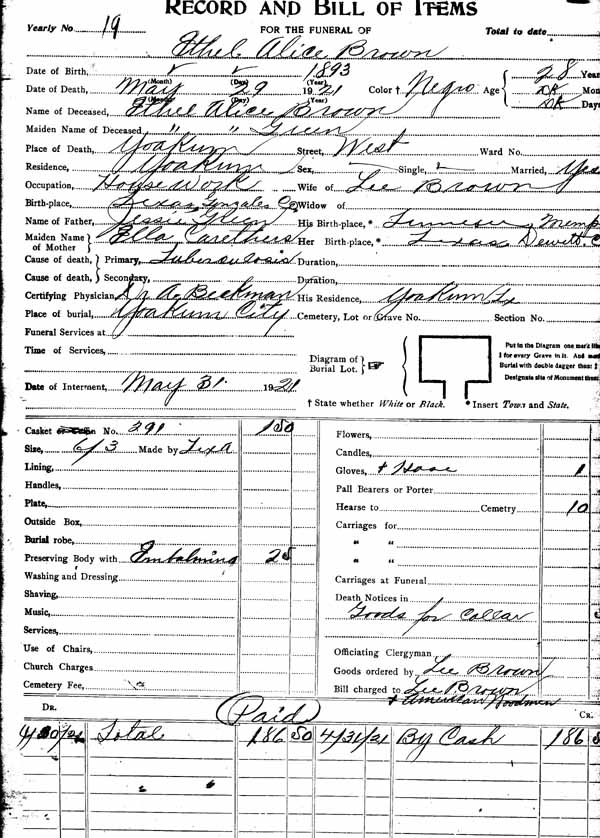 RECORD AND BILL OF ITEMS
Yearly No 19 FOR THE FUNERAL OF Total to date
Ethel Alice Brown
Date of Birth, 1893 28 Year
(Month) (Day) (Year)
Date of Death, May 29 1921 Color † Negro Age DK Mon
(Month) (Day) (Year)
Name of Deceased, Ethel Alice Brown DK Days
Maiden Name of Deceased " " Green
Place of Death, Yoakum Street, West Ward No.
Residence, Yoakum Sex, Single, Married, Yes
Occupation, House Work Wife of Lee Brown
Birth-place, Texas Gonzales Co Widow of
Name of Father, Jessie Green His Birth-place,* Tennesse Memp
Maiden Name of Mother Ella Carethers Her Birth-place,* Texas Dewitt C
Cause of death, Primary, Tuberculosis Duration,
Cause of death, Secondary, Duration,
Certifying Physician, A Beckman His Residence, Yoakum Tx
Place of burial, Yoakum City Cemetery, Lot or Grave No. Section No.
Funeral Services at
Time of Services,
Diagram of Burial Lot.
Put in the Diagram one mark lik
1 for every Grave in it. And mar
Burial with double dagger thus: ‡
Designate site of Monument thus
Date of Interment, May 31 1921
† State whether White or Black. * Insert Town and State.
Casket No. 291 150
Size, 6/3 Made by Texa
Lining,
Handles,
Plate,
Outside Box,
Burial robe,
Preserving Body with Embalming 25
Washing and Dressing
Shaving,
Music,
Services,
Use of Chairs,
Church Charges
Cemetery Fee,
Flowers,
Candles,
Gloves, + Hose 1
Pall Bearers or Porter
Hearse to Cemetry 10
Carriages for
" "
" "
Carriages at Funeral
Death Notices in
Goods for Collar
Officiating Clergyman
Goods ordered by Lee Brown
Bill charged to Lee Brown
+ American Woodmen
DR. Paid CR.
Total 186 50 4/31/21 By Cash 186 5